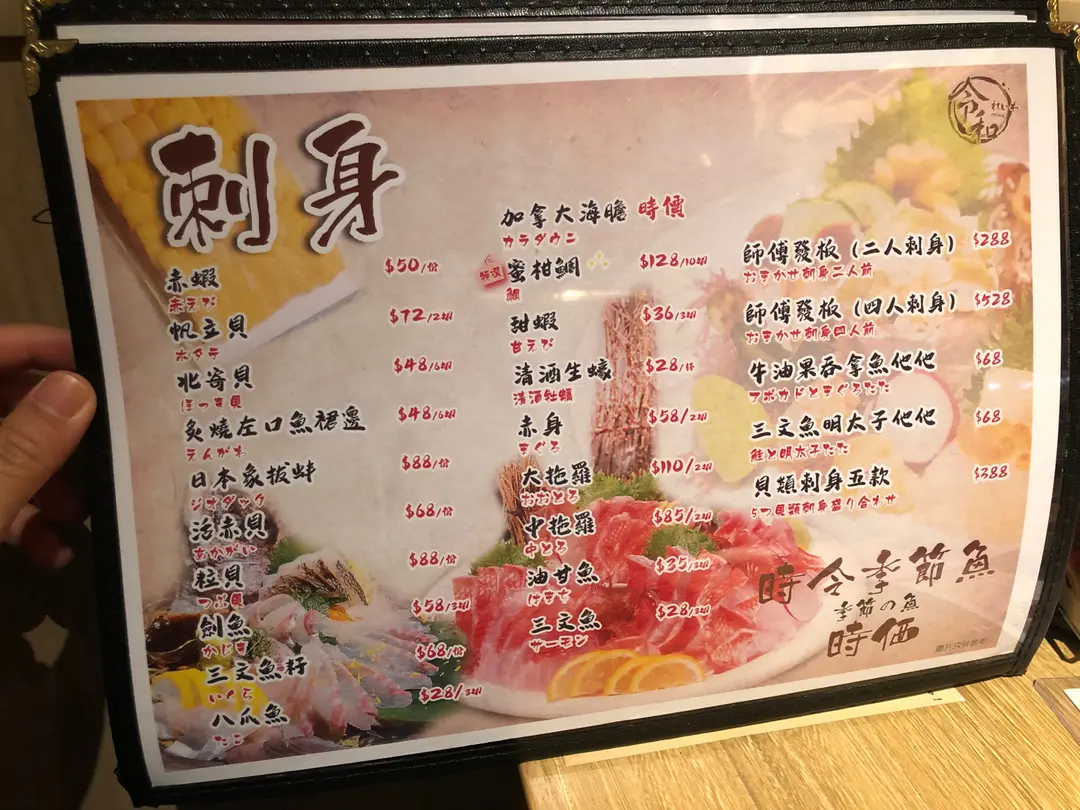 刺身
令和
赤蝦 $50/份
赤えび
帆立貝 $72/2切
ホタテ
北寄貝 $48/6切
ほっき貝
炙燒左口魚裙邊 $48/6切
えんがわ
日本象拔蚌 $88/份
ジオダック
活赤貝 $68/份
あかがい
粒貝 $88/份
つぶ貝
劍魚 $58/3切
かじき
三文魚籽 $68/份
いくら
八爪魚 $28/3切
たこ
加拿大海膽 時價
カラダウニ
特選
蜜柑鯛 $128/10切
鯛
甜蝦 $36/3切
甘えび
清酒生蠔 $28/件
清酒牡蠣
赤身 $58/2切
まぐろ
大拖羅 $110/2切
おおとろ
中拖羅 $85/2切
中とろ
油甘魚 $35/3切
はまち
三文魚 $28/3切
サーモン
師傅發板 (二人刺身) $288
おまかせ刺身二人前
師傅發板 (四人刺身) $528
おまかせ刺身四人前
牛油果吞拿魚他他 $68
アボカドとまぐろたた
三文魚明太子他他 $68
鮭と明太子たた
貝類刺身五款 $388
5つ貝類刺身盛り合わせ
時令季節魚
季節の魚
時価
圖片只供參考